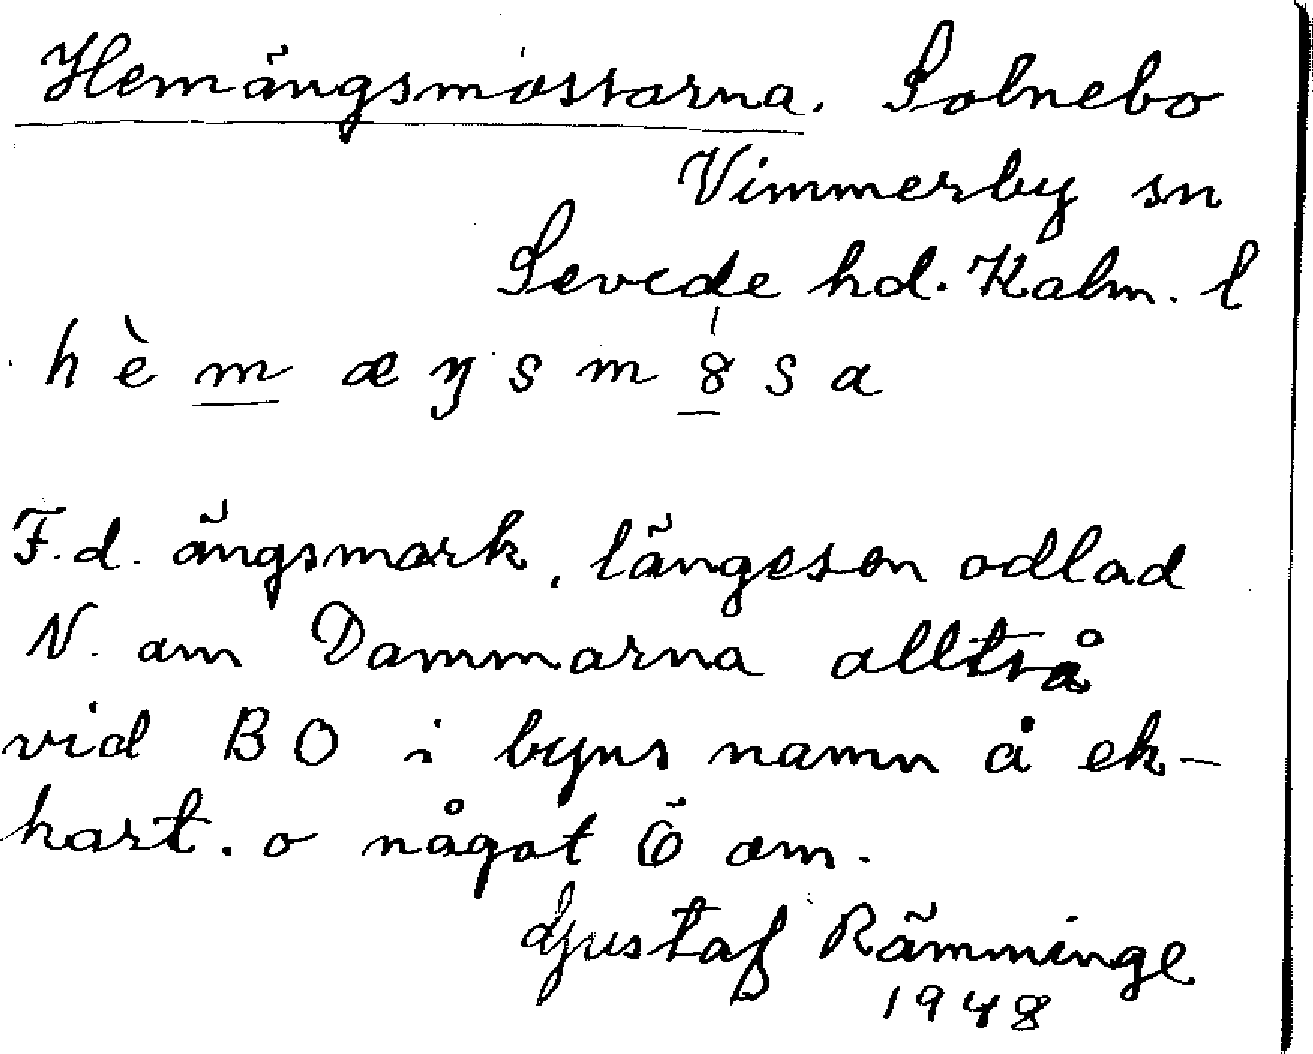 Hemängsmossarna. Solnebo
Vimmerby sn
Sevede hd. Kalm. l
h è m æ ŋ s m 8 s a
F.d. ängsmark, längesen odlad
N. om Dammarna alltså
vid BO i byns namn å ek-
kart. o något Ö om.
Gustaf Rämminge
1948